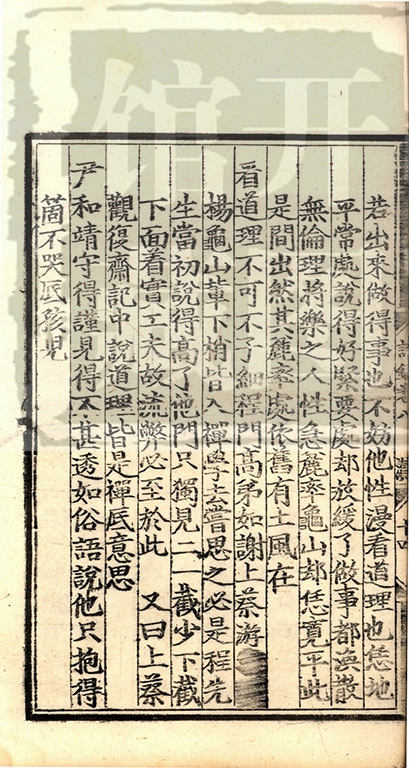 若出來做得事也不妨他性漫看道理也恁地
平常處說得好緊要處却放緩了做事都渙散
無倫理將樂之人性急麄率龜山却恁寬平此
是間出然其麄率處依舊有土風在
看道理不可不子細程門高弟如謝上蔡游
楊龜山輩下梢皆入禪學去嘗思之必是程先
生當初說得高了他門只獨見一截少下截
下面看實工夫故流弊必至於此　又曰上蔡
觀復齋記中說道理皆是禪底意思
尹和靖守得謹見得不甚透如俗語說他只抱得
箇不哭底孩兒
開
館